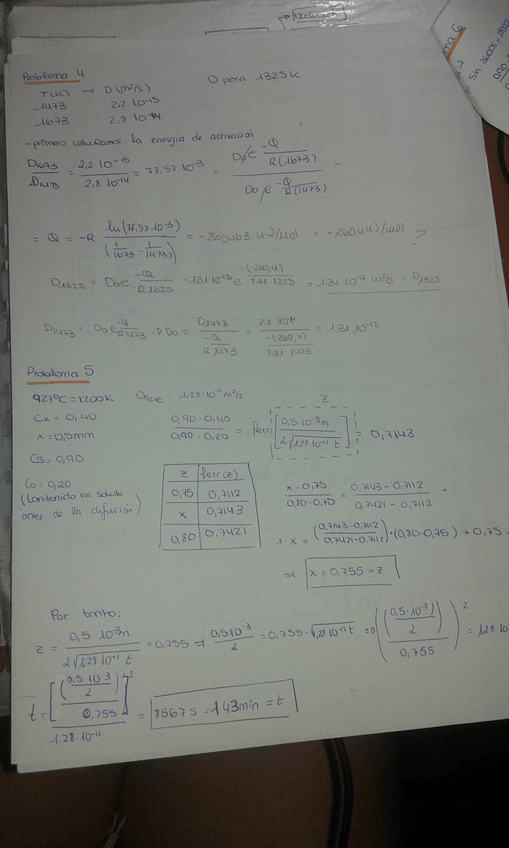 Problema 4
D para 1325K
T(K) → D(m²/s)
1473 2.2 10⁻¹⁵
1673 2.8 10⁻¹⁴
- primero calculamos la energia de activación
D1673/D1473 = 2,2 10⁻¹⁵/2.8 10⁻¹⁴ = 78,57 10⁻³ = Do e -Q/R(1673) / Do e -Q/R(1473) =
= Q = -R ln(78,57·10⁻³)/(1/1673 - 1/1473) = -260463,4 J/mol = -260,4 KJ/mol ?
D1325 = Do e -Q/R 1325 = 1.31 10⁻¹² e -(-260,4)/8.31 1325 = 1.34 10⁻¹² m²/s = D1325
D1473 = Do e -Q/R1473 ⇒ Do = D1473/(-Q/R 1473) = 2.8 10⁻¹⁴/(-(-260,4)/8.31 1473) = 1.31 10⁻¹²
Problema 5
927ºC = 1200K 1.28·10⁻¹¹ m²/s
Cx = 0,40
x = 0,5mm
Cs = 0,90
Co = 0,20
(contenido en soluto
antes de la difusión)
0,90-0,40/0,90-0,20 = ferr [0,5·10⁻³m/2√1,28·10⁻¹¹ t] = 0,7143
z
z ferr(z)
0,75 0,7112
x 0,7143
0,80 0,7421
x-0,75/0,80-0,75 = 0,7143-0,7112/0,7421-0,7112 =
x = (0,7143-0,7112/0,7421-0,7112)·(0,80-0,75) + 0,75 =
⇒ x = 0,755 = z
Por tanto:
z = 0,5 10⁻³m/2√1,28 10⁻¹¹ t = 0,755 ⇒ 0,5 10⁻³/2 = 0,755·√1,28 10⁻¹¹ t ⇒ ((0,5·10⁻³/2)/0,755)² = 1,28 10
t = [(0,5 10⁻³/2)/0,755]²/1.28 10⁻¹¹ = 8567 s = 143 min = t